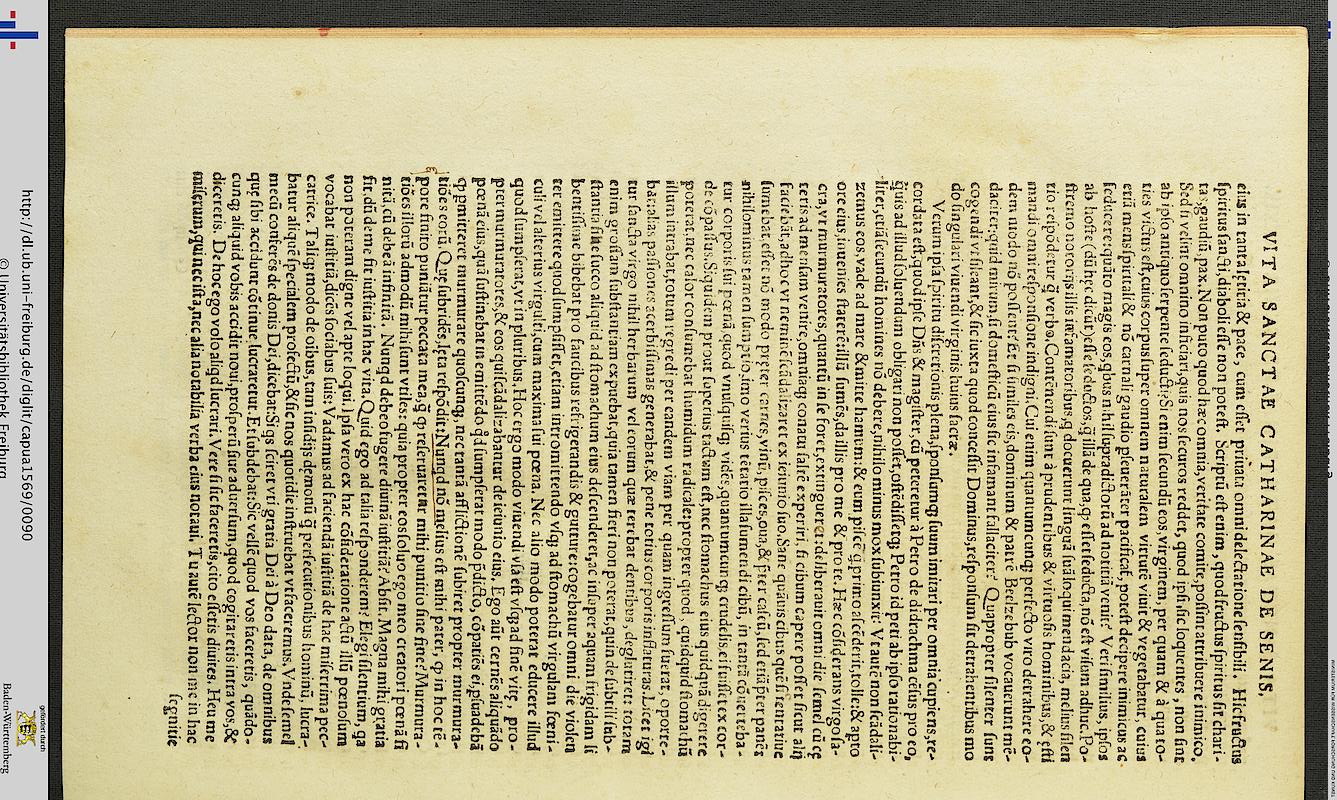 VITA SANCTAE CATHARINAE DE SENIS.
eius in tanta lęticia & pace, cum esset priuata omni delectatione sensibili. Hic fructus
spiritus sancti, diaboli esse non potest. Scriptū est enim, quod fructus spiritus sit chari-
tas, gaudiū, pax. Non puto quod hæc omnia, veritate comite, possint attribuere inimico,
Sed si velint omnino insectari, quis nos securos reddet, quod ipsi sic loquentes, non sint
ab ipso antiquo serpente seducti: Si enim secundū eos, virginem, per quam & à qua to-
ties victus est, cuius corpus super omnem naturalem virtutē vixit & vegetabatur, cuius
etiā mens spirituali & nō carnali gaudio
seducere: quāto magis eos, qbus nihil supradictorū ad notitiā venit? Veri similius, ipsos
ab hoste
tio respōdetur q̄ verbo. Contēnendi sunt à prudentibus & virtuosis hominibus, & ęsti
mandi omni responsione indigni. Cui enim quantumcunq; perfecto viro detrahere eo-
dem modo nō possent? Et si similes eis, dominum & patrē Beelzebub vocauerunt mē-
daciter: quid mirum, si domesticā eius sic infamant fallaciter? Quapropter silenter sunt
cogendi vt sileant, & sic iuxta quod concessit Dominus, responsum sit detrahentibus mo
do singulari viuendi virginis huius sacræ.
Verum ipsa spiritu discretionis plena, sponsumq; suum imitari per omnia cupiens, re-
cordata est, quod ipse Dñs & magister, cū peteretur à Petro de didrachma
quis ad illud soluendum obligari non posset, ostēdissetq; Petro id peti ab ipso rationabi-
liter, etiā secundū homines nō debere, nihilo minus mox subiunxit: Vt autē non scādali-
zemus eos, vade ad mare & mitte hamum: & eum piscē q primo ascēderit, tolle: & apto
ore eius, inuenies staterē: illū sumēs, da illis pro me & pro te. Hæc cōsiderans virgo sa-
cra, vt murmuratores, quantū in se foret, extingueret: deliberauit omni die semel cū cę
teris ad mensam venire, omniaq; conatu saltē experiri, si cibum capere posset sicut alij
faciebāt, ad hoc vt neminē scādalizaret ex ieiunio suo. Sane quāuis cibus quē
sumebat, esset no modo pręter carnes, vinū, pisces, oua, & pręter caseū, sed etiā pręter panē:
nihilominus tamen
tur corporis sui pœnā quod vnusquisq; vidēs, quantumcunq; crudelis, ei fuisset ex cor-
de cōpassus. Siquidem prout superius tactum est, nec stomachus eius quidquā digerere
poterat, nec calor consumebat humidum radicale: propter quod, quidquid stomachū
illum intrabat, totum regredi per eandem viam per quam ingressum fuerat, oporte-
bat: alias, passiones acerbissimas generabat, & pene totius corporis inflaturas. Licet igi
tur sancta virgo nihil herbarum vel eorum quæ terebat dentibus, deglutiret: totam
enim grossam substantiam expuebat, quia tamen fieri non poterat, quin de subtili sub-
stantia siue succo aliquid ad stomachum eius descenderet, ac insuper aquam frigidam li
bentissime bibebat pro faucibus refrigerandis & gutture: cogebatur omni die violen
ter emittere quod sumpsisset, etiam intromittendo vsq; ad stomachū virgulam fœni-
culi vel alterius virgulti, cum maxima sui pœna. Nec alio modo poterat educere illud
quod sumpserat, vt in pluribus. Hoc ergo modo viuendi vsa est vsq; ad finē vitę, pro-
pter murmuratores, & eos qui scādalizabantur de ieiunio eius. Ego autē cernēs aliquādo
pœnā eius, quā sustinebat in emittēdo qd sumpserat modo p̄dicto, cōpatiēs ei, suadebā
φ pmitteret murmurare quoscunq;, nec tantā afflictionē subiret propter murmura-
tiōes eorū. Quę subridēs, lęta respōdit: Nunqd nō melius est mihi pater, φ in hoc tē-
pore finito puniātur peccata mea, q̄ φ reseruaretur mihi punitio sine fine? Murmura-
tiōes illorū admodū mihi sunt vtiles: quia propter eos soluo ego meo creatori pœnā fi
nitā, cū debeā infinitā. Nunqd debeo fugere diuinā iustitiā? Absit. Magna mihi gratia
fit, dū de me fit iustitia in hac vita. Quid ego ad talia responderem? Elegi silentium, qa
non poteram digne vel apte loqui. Ipsa vero ex hac cōsideratione actū illū pœnosum
vocabat iustitiā, dicēs sociabus suis: Vadamus ad faciendā iustitiā de hac miserrima pec-
catrice. Taliq; modo de oībus, tam insidijs demonū q̄ persecutionibus hominū, lucra-
batur aliquē specialem profectū, & sic nos quotidie instruebat vt faceremus. Vnde semel
mecū conferēs de donis Dei, dicebat: Si qs sciret vti gratia Dei à Deo data, de omnibus
quę sibi accidunt cōtinue lucraretur. Et subdebat: Sic vellē quod vos faceretis, quādo-
cunq; aliquid vobis accidit noui, prosperū siue aduersum, quod cogitaretis intra vos, &
diceretis. De hoc ego volo aliqd lucrari. Vere si sic faceretis, cito essetis diuites. Heu me
miserum, qui nec ista, nec alia notabilia verba eius notaui. Tu autē lector non me in hac
segnitie
http://dl.ub.uni-freiburg.de/diglit/capua1569/0090
© Universitätsbibliothek Freiburg
gefördert durch
Baden-Württemberg